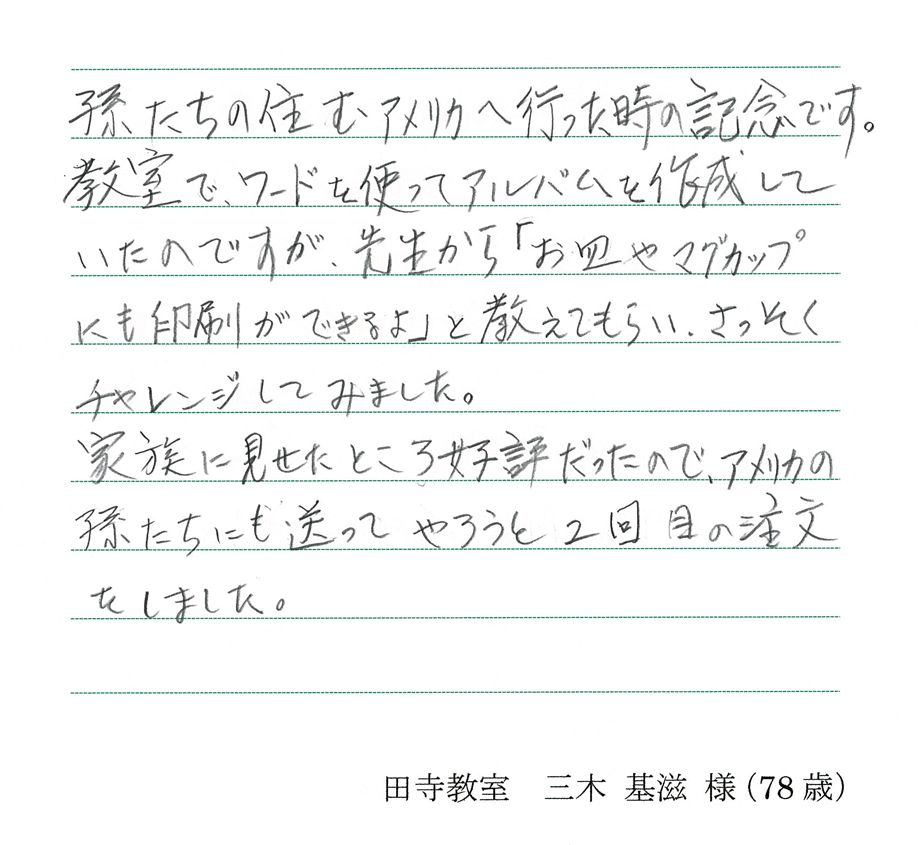 孫たちの住むアメリカへ行った時の記念です。
教室で、ワードを使ってアルバムを作成して
いたのですが、先生から「お皿やマグカップ
にも印刷ができるよ」と教えてもらい、さっそく
チャレンジしてみました。
家族に見せたところ好評だったので、アメリカの
孫たちにも送ってやろうと2回目の注文
をしました。
田寺教室 三木 基滋 様(78歳)